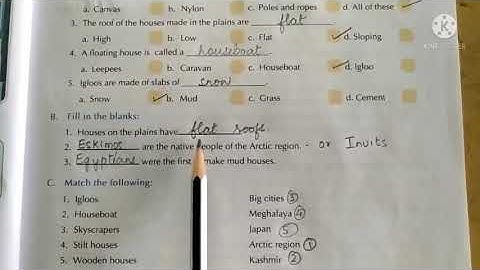 a. Canvas b. Nylon c. Poles and ropes d. All of these
3. The roof of the houses made in the plains are flat
a. High b. Low c. Flat d. Sloping
4. A floating house is called a houseboat.
a. Leepees b. Caravan c. Houseboat d. Igloo
5. Igloos are made of slabs of snow.
a. Snow b. Mud c. Grass d. Cement
B. Fill in the blanks:
1. Houses on the plains have flat roofs.
2. Eskimos are the native people of the Arctic region. - or Inuits
3. Egyptians were the first make mud houses.
C. Match the following:
1. Igloos Big cities 3
2. Houseboat Meghalaya 4
3. Skyscrapers Japan 5
4. Stilt houses Arctic region 1
5. Wooden houses Kashmir 2